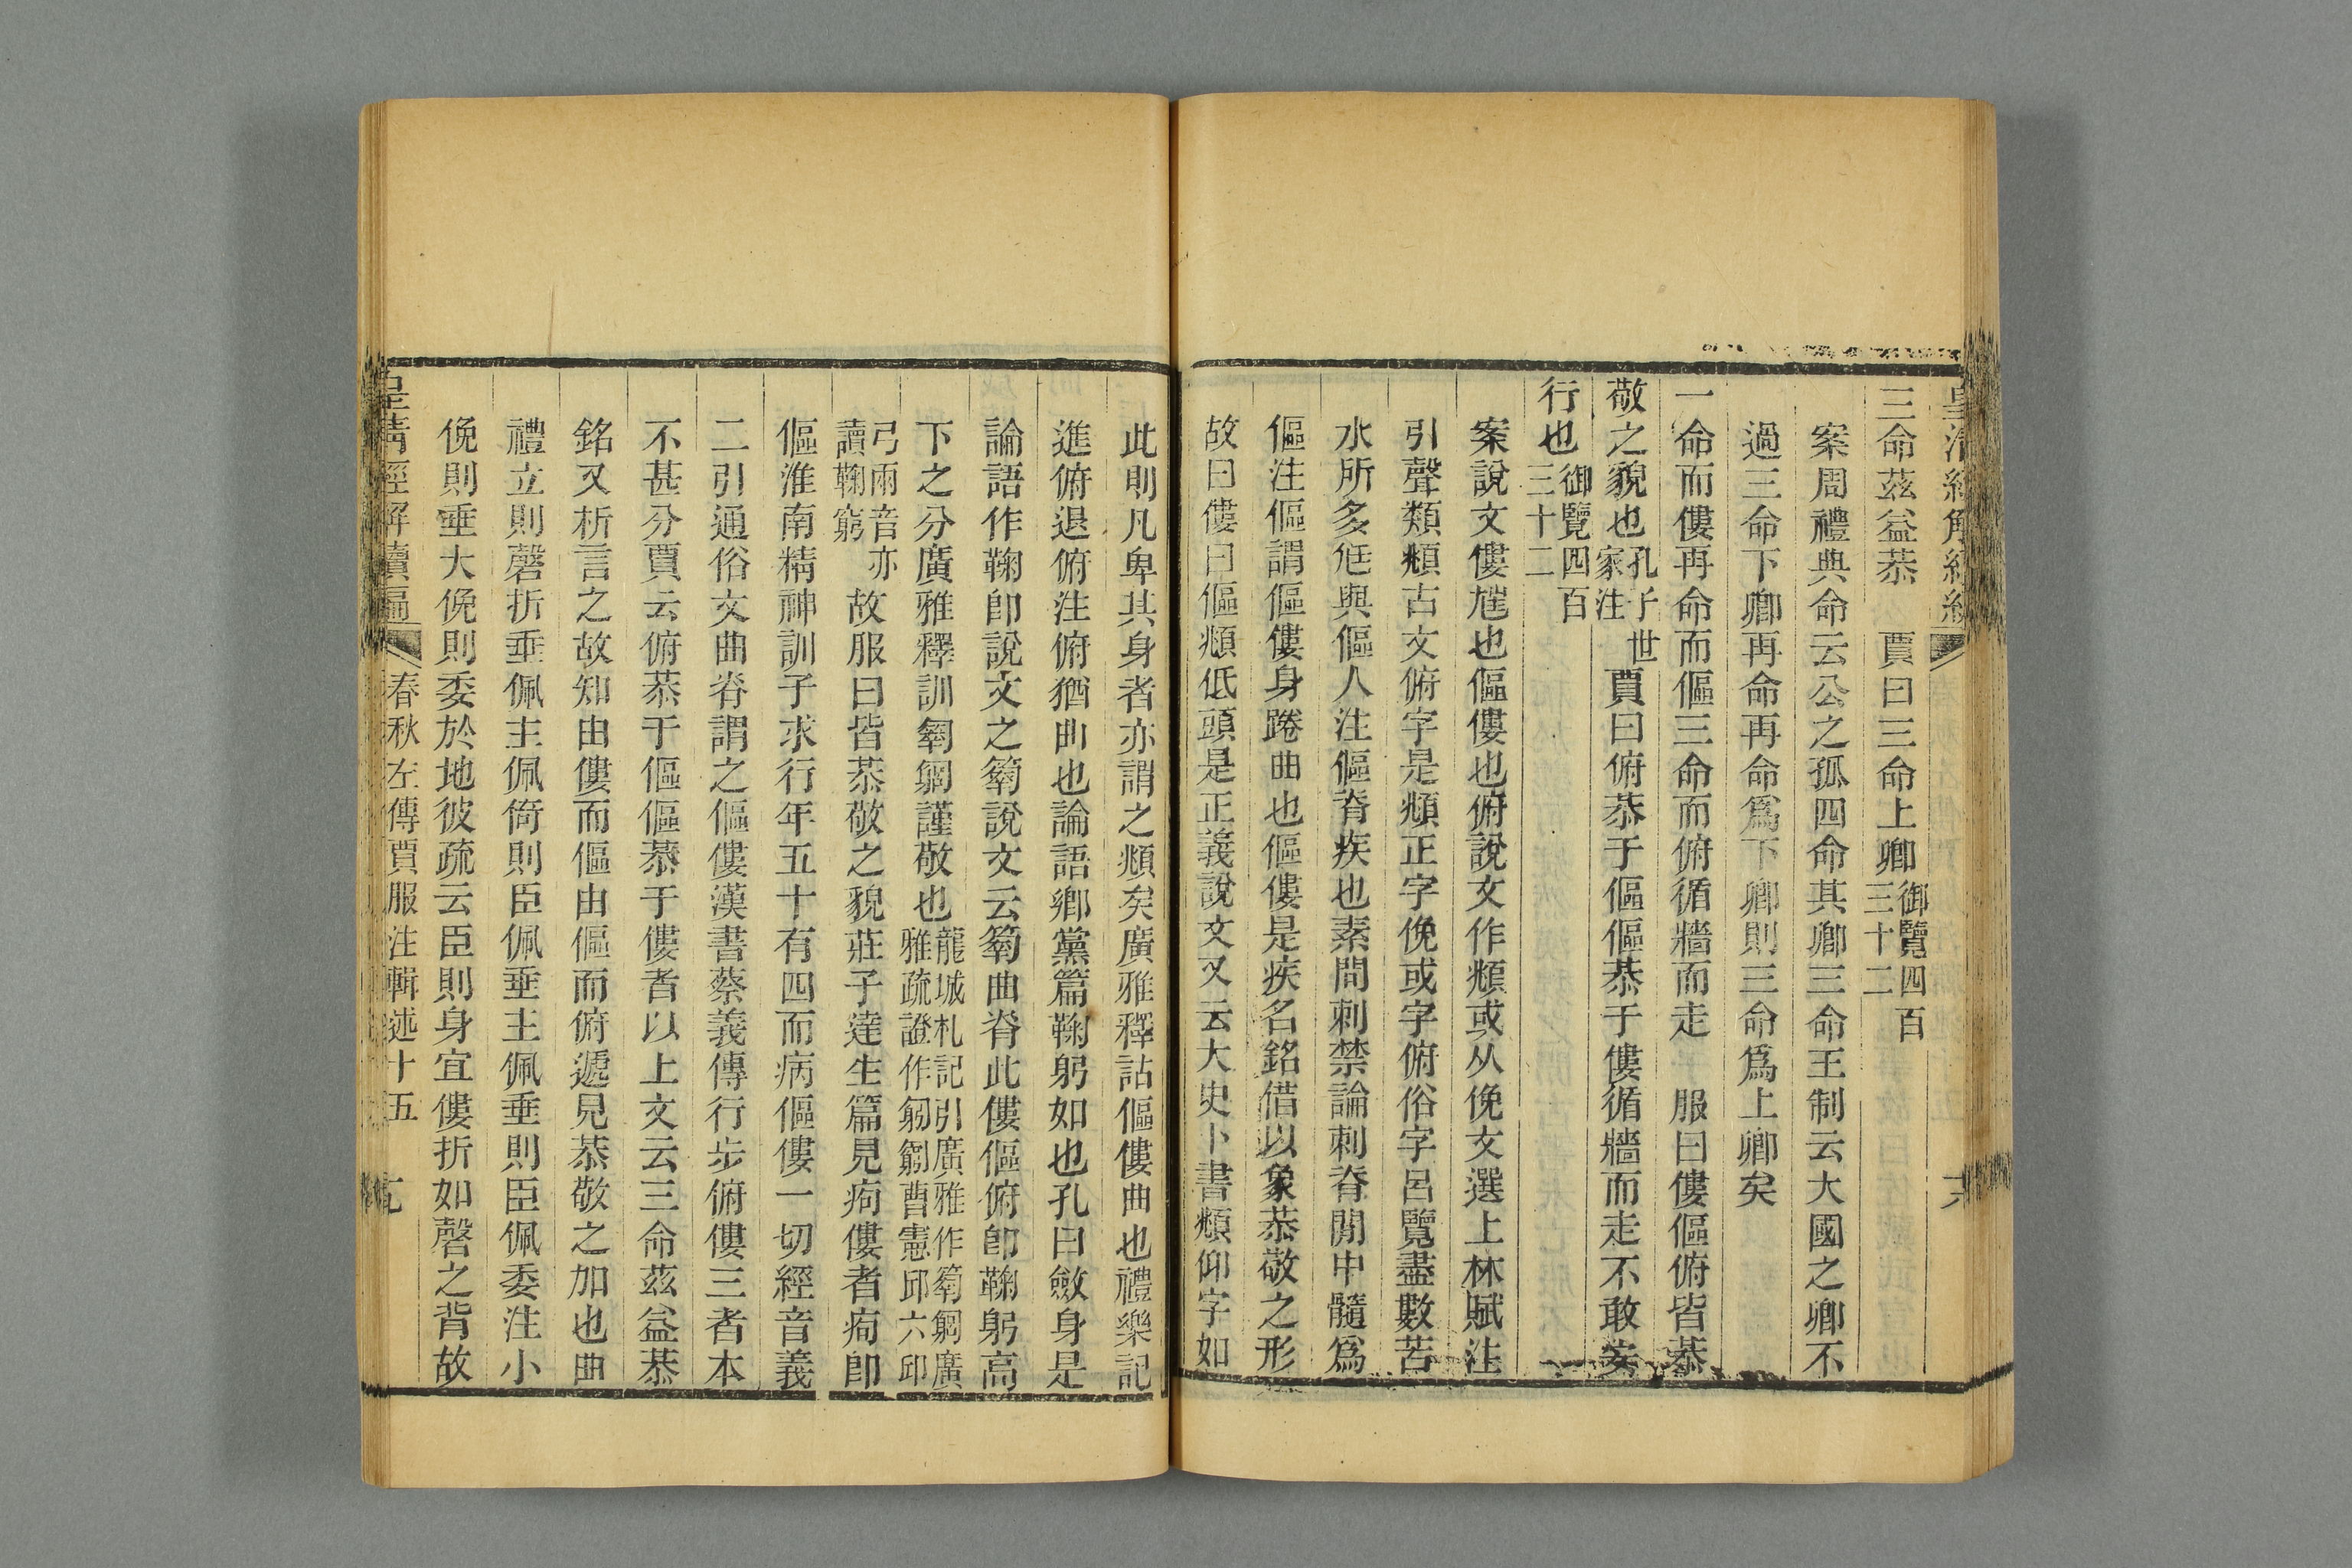 三命茲益恭　賈曰三命上卿御覽四百三十二
案周禮典命云公之孤四命其卿三命王制云大國之卿不
過三命下卿再命再命爲下卿則三命爲上卿矣
一命而僂再命而傴三命而俯循牆而走　服曰僂傴俯皆恭
敬之貌也孔子世家注　賈曰俯恭于傴傴恭于僂循牆而走不敢安
行也御覽四百三十二
案說文僂尪也傴僂也俯說文作頫或从俛文選上林賦注
引聲類頫古文俯字是頫正字俛或字俯俗字呂覽盡數苦
水所多尪與傴人注傴脊疾也素問刺禁論刺脊閒中髓爲
傴注傴謂傴僂身踡曲也傴僂是疾名銘借以象恭敬之形
故曰僂曰傴頫低頭是正義說文又云大史卜書頫仰字如
此則凡卑其身者亦謂之頫矣廣雅釋詁傴僂曲也禮樂記
進俯退俯注俯猶曲也論語鄉黨篇鞠躬如也孔曰斂身是
論語作鞠卽說文之䈮說文云䈮曲脊此僂傴俯卽鞠躬高
下之分廣雅釋訓匑匔謹敬也龍城札記引廣雅作䈮匔廣雅疏證作匑匔曹憲邱六邱
弓兩音亦讀鞠窮　故服曰皆恭敬之貌莊子達生篇見痀僂者痀卽
傴淮南精神訓子求行年五十有四而病傴僂一切經音義
二引通俗文曲脊謂之傴僂漢書蔡義傳行步俯僂三者本
不甚分賈云俯恭于傴傴恭于僂者以上文云三命茲益恭
銘又析言之故知由僂而傴由傴而俯遞見恭敬之加也曲
禮立則磬折垂佩主佩倚則臣佩垂主佩垂則臣佩委注小
俛則垂大俛則委於地彼疏云臣則身宜僂折如磬之背故
皇清經解續編　春秋左傳賈服注輯述十五